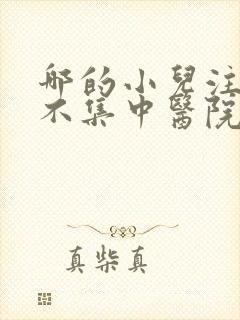 哪的小兒注
不集中醫院
真柴真